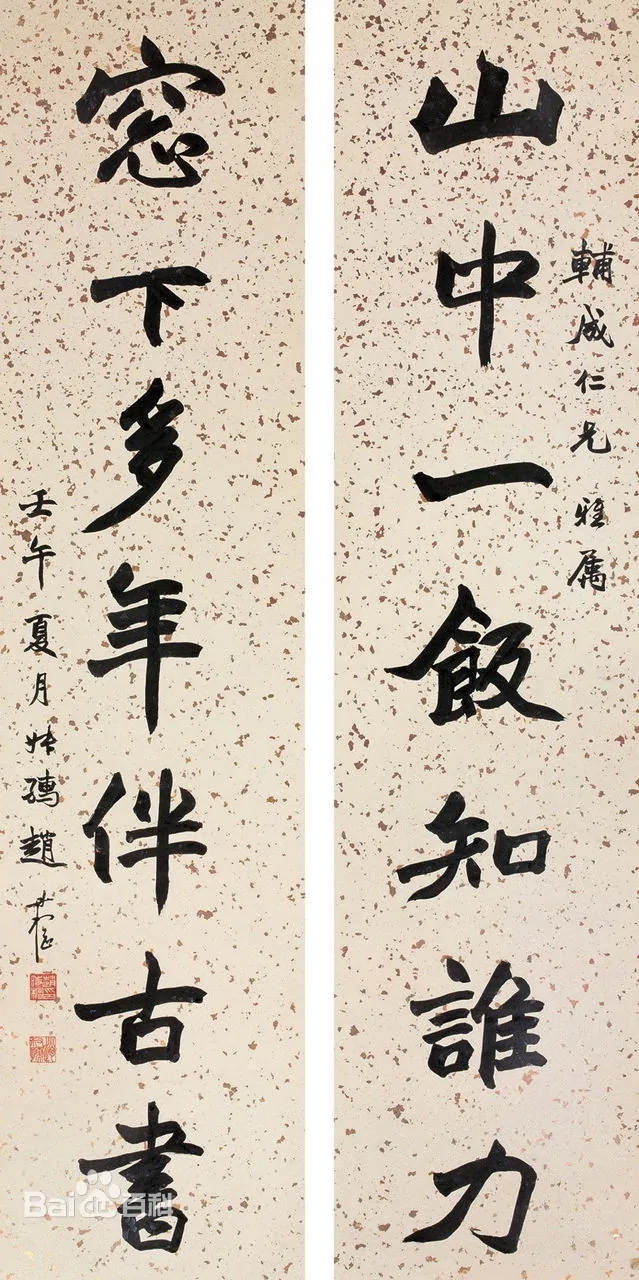 輔成仁兄 雅属
山中一飯知誰力
窓下多年伴古書
壬午夏月叔孺趙
Bai百科